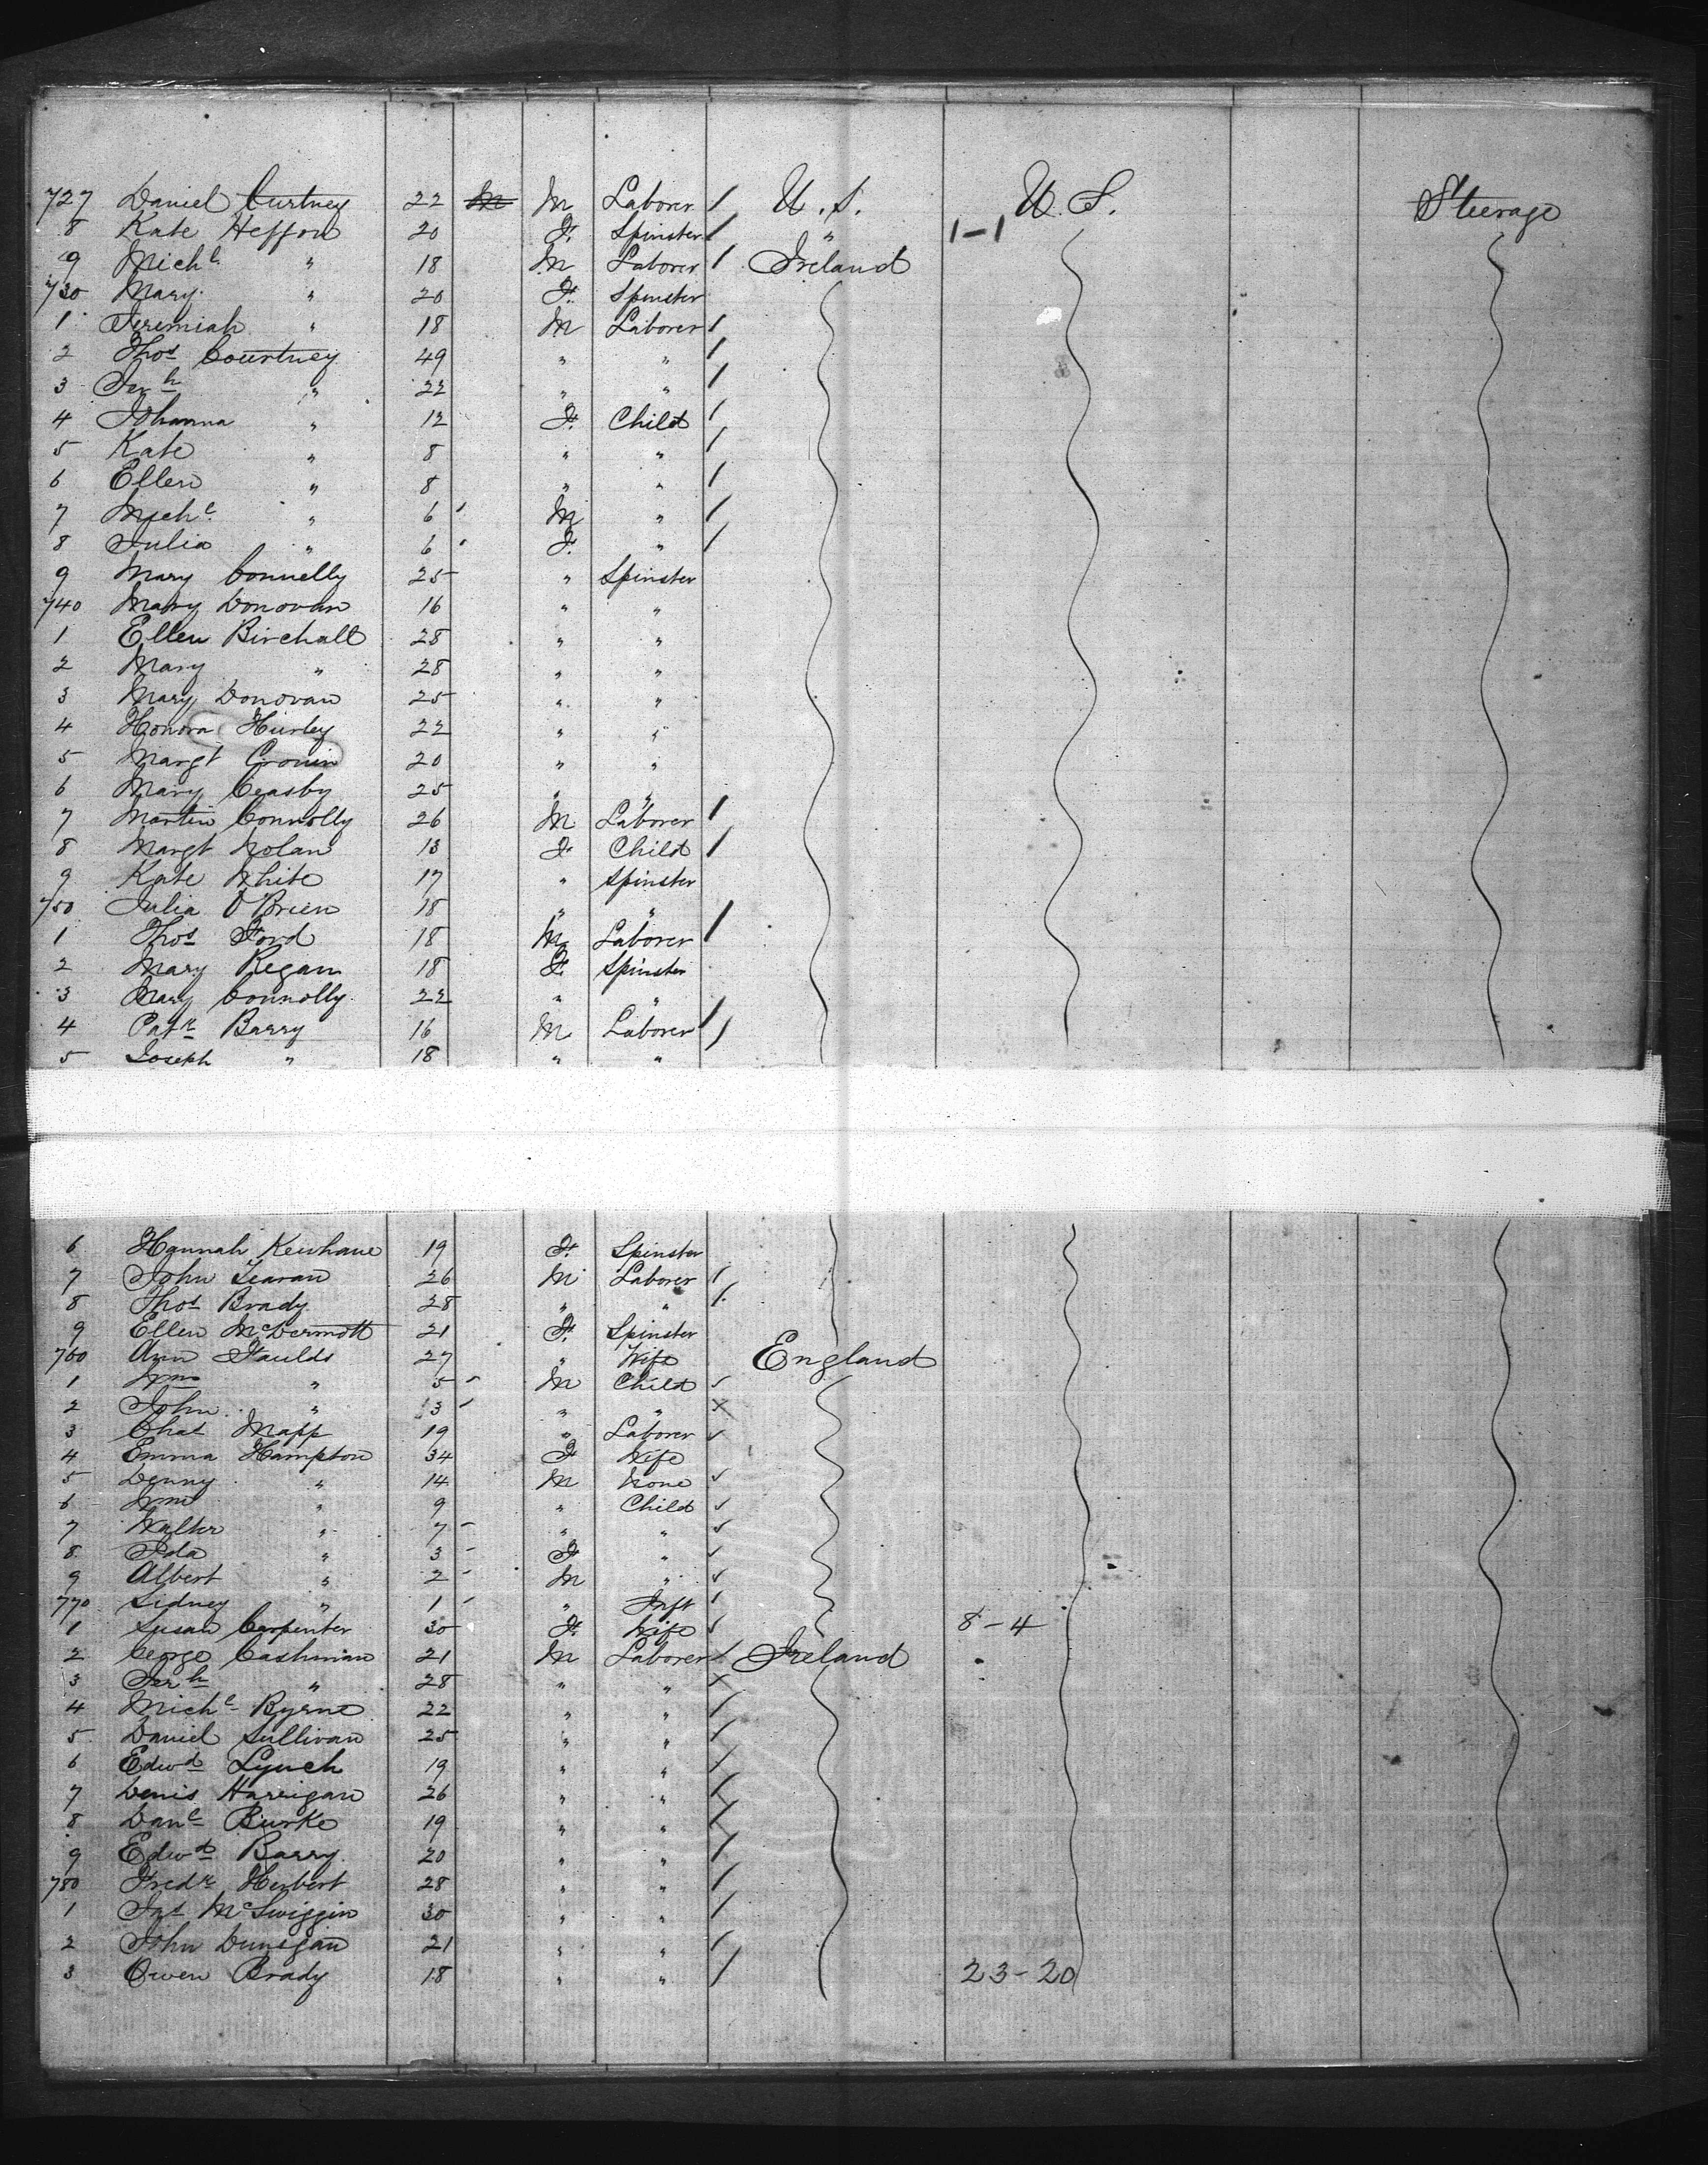 727 Daniel Curtney 22 M M Laborer / U.S. U.S. Steerage
8 Kate Heffron 20 F. Spinster / " 1-1
9 Michl " 18 M Laborer / Ireland
730 Mary " 20 F. Spinster
1 Jeremiah " 18 M Laborer /
2 Thos Courtney 49 " " /
3 Jerh " 22 " " /
4 Johanna " 12 F. Child /
5 Kate " 8 " " /
6 Ellen " 8 " " /
7 Michl " 6 ' M " /
8 Julia " 6 ' F. " /
9 Mary Connelly 25 " Spinster
740 Mary Donovan 16 " "
1 Ellen Birchall 28 " "
2 Mary " 28 " "
3 Mary Donovan 25 " "
4 Honora Hurley 22 " "
5 Margt Cronin 20 " "
6 Mary Ceasby 25 " "
7 Martin Connolly 26 M Laborer /
8 Margt Nolan 13 F Child /
9 Kate White 17 " Spinster
750 Julia O'Brien 18 " "
1 Thos Ford 18 M Laborer /
2 Mary Regan 18 F. Spinster
3 Mary Connolly 22 " "
4 Patk Barry 16 M Laborer /
5 Joseph " 18 " " /
6 Hannah Keuhane 19 F. Spinster
7 John 26 M Laborer /
8 Thos Brady 28 " " /
9 Ellen McDermott 21 F. Spinster
760 Ann Faulds 27 " Wife England
1 Wm " 5 - M Child ✓
2 John " 3 ' " " x
3 Chas Mapp 19 " Laborer ✓
4 Emma Hampton 34 F Wife
5 Denny " 14 M None ✓
6 Wm " 9 " Child ✓
7 Walter " 7 - " " ✓
8 Ida " 3 - F " ✓
9 Albert " 2 - M " ✓
770 Sidney " 1 - " Inft /
1 Susan Carpenter 30 F. Wife ✓ 8-4
2 George Cashman 21 M Laborer x Ireland
3 Jerh " 28 " " x
4 Michl Byrne 22 " " /
5 Daniel Sullivan 25 " " /
6 Edwd Lynch 19 " " /
7 Denis Harrigan 26 " " /
8 Danl Burke 19 " " /
9 Edwd Barry 20 " " /
780 Fredk Herbert 28 " " /
1 Jas McSwiggin 30 " " /
2 John Dunigan 21 " " /
3 Owen Brady 18 " " / 23-20